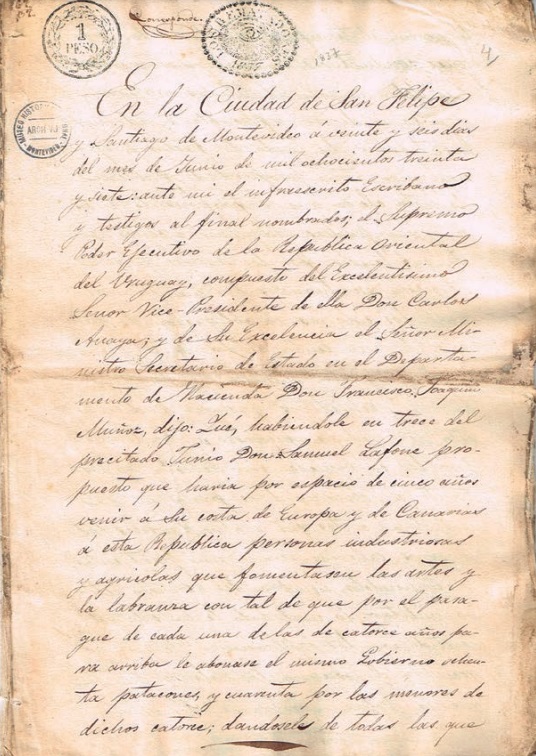 1
PESO
Corresponde
1837
4
En la Ciudad de San Felipe
y Santiago de Montevideo á veinte y seis dias
del mes de Junio de mil ochocientos treinta
y siete: ante mi el infraescrito Escribano
y testigos al final nombrados; el Supremo
Poder Ejecutivo de la Republica Oriental
del Uruguay, compuesto del Excelentisimo
Señor Vice-Presidente de ella Don Carlos
Anaya; y de Su Excelencia el Señor Mi-
nistro Secretario de Estado en el Departa-
mento de Hacienda Don Francisco Joaquin
Muñoz, dijo: Qué, habiendole en trece del
precitado Junio Don Samuel Lafone pro-
puesto que haria por espacio de cinco años
venir á su costa de Europa y de Canarias
á esta Republica personas industriosas
y agricolas que fomentasen las artes y
la labranza con tal de que por el pasa-
ge de cada una de las de catorce años pa-
ra arriba le abonase el mismo Gobierno ochen-
ta patacones, y cuarenta por las menores de
dichos catorce; dandosele de todas las que